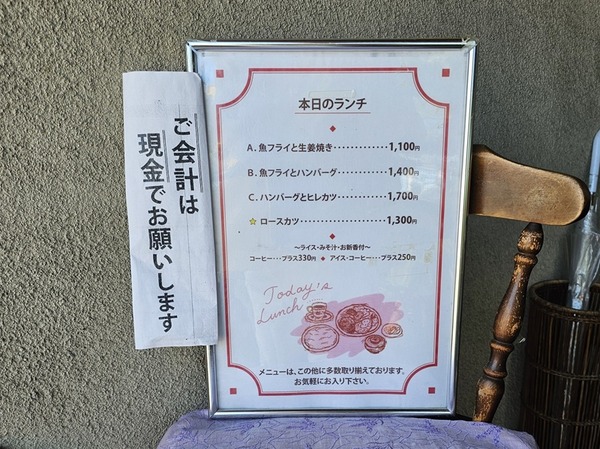 ご会計は
現金でお願いします
本日のランチ
A. 魚フライと生姜焼き・・・・・・・・・・・・1,100円
B. 魚フライとハンバーグ・・・・・・・・・・・1,400円
C. ハンバーグとヒレカツ・・・・・・・・・・・1,700円
☆ ロースカツ・・・・・・・・・・・・・・・・・・1,300円
～ライス・みそ汁・お新香付～
コーヒー・・・プラス330円 ◆ アイス・コーヒー・・・プラス250円
Today's
Lunch
メニューは、この他に多数取り揃えております。
お気軽にお入り下さい。